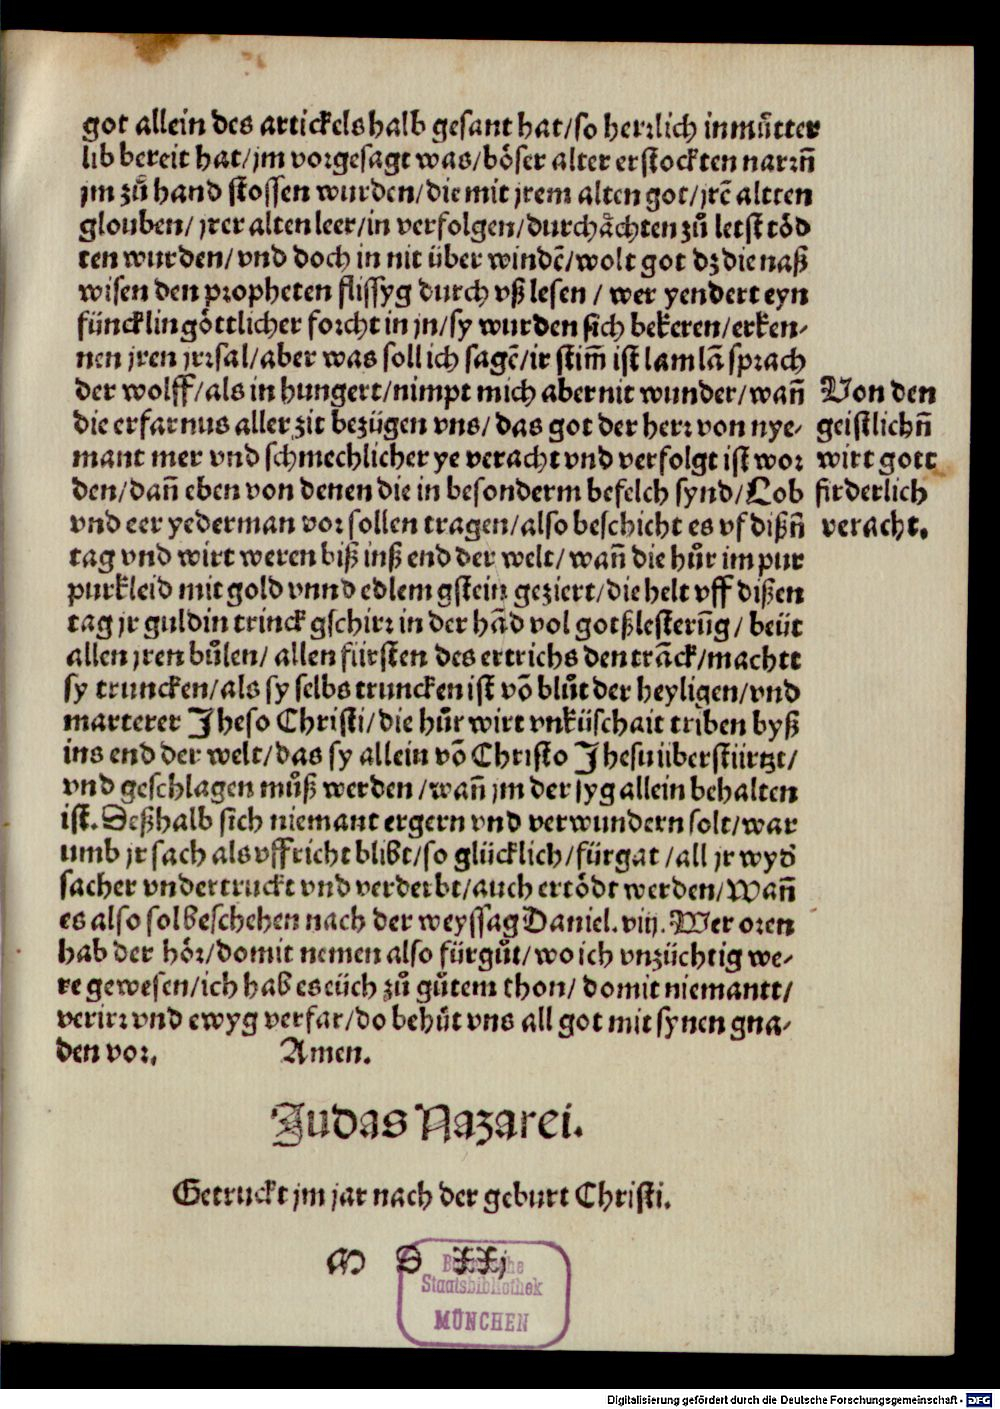 got allein des artickels halb gesant hat/so herꝛlich in můtter
lib bereit hat/jm voꝛgesagt was/böser alter erstockten narꝛñ
jm zů hand stossen wurden/die mit jrem alten got/jrē altten
glouben/ jrer alten leer/in verfolgen/durchächten zů letst töd
ten wurden/ vnd doch in nit über windē/wolt got dz die naß
wisen den pꝛopheten flissyg durch vß lesen / wer yendert eyn
füncklin göttlicher foꝛcht in jn/sy wurden sich bekeren/erken-
nen jren jrꝛsal/aber was soll ich sagē/ir stim̄ ist lamlā spꝛach
der wolff/als in hungert/nimpt mich aber nit wunder/wañ
die erfarnus aller zit bezügen vns/ das got der herꝛ von nye-
mant mer vnd schmechlicher ye veracht vnd verfolgt ist woꝛ
den/dañ eben von denen die in besonderm befelch synd/Lob
vnd eer yederman voꝛ sollen tragen/also beschicht es vf dißñ
tag vnd wirt weren biß inß end der welt/ wañ die hůr im pur
purkleid mit gold vnnd edlem gstein geziert/die helt vff dißen
tag jr guldin trinck gschirꝛ in der hād vol gotßlesterūg/ beüt
allen jren bůlen/ allen fürsten des ertrichs den trāck/machtt
sy truncken/als sy selbs truncken ist vō blůt der heyligen/vnd
marterer Jheso Christi/die hůr wirt vnküschait triben byß
ins end der welt/das sy allein vō Christo Jhesu überstürtzt/
vnd geschlagen můß werden /wañ jm der syg allein behalten
ist. Deßhalb sich niemant ergern vnd verwundern solt/war
umb jr sach als vffricht blibt/so glücklich/fürgat /all jr wyd̕
sacher vndertruckt vnd verderbt/auch ertödt werden/Wañ
es also sol beschehen nach der weyssag Daniel. viij. Wer oꝛen
hab der höꝛ/domit nemen also fürgůt/wo ich vnzüchtig we-
re gewesen/ich hab es eüch zů gůtem thon/ domit niemantt/
verirꝛ vnd ewyg verfar/do behůt vns all got mit synen gna-
den voꝛ. Amen.
Von den
geistlichñ
wirt gott
firderlich
veracht.
Judas Nazarei.
Getruckt jm jar nach der geburt Christi.
M D XXj
Bayerische
Staatsbibliothek
MÜNCHEN
Digitalisierung gefördert durch die Deutsche Forschungsgemeinschaft - DFG